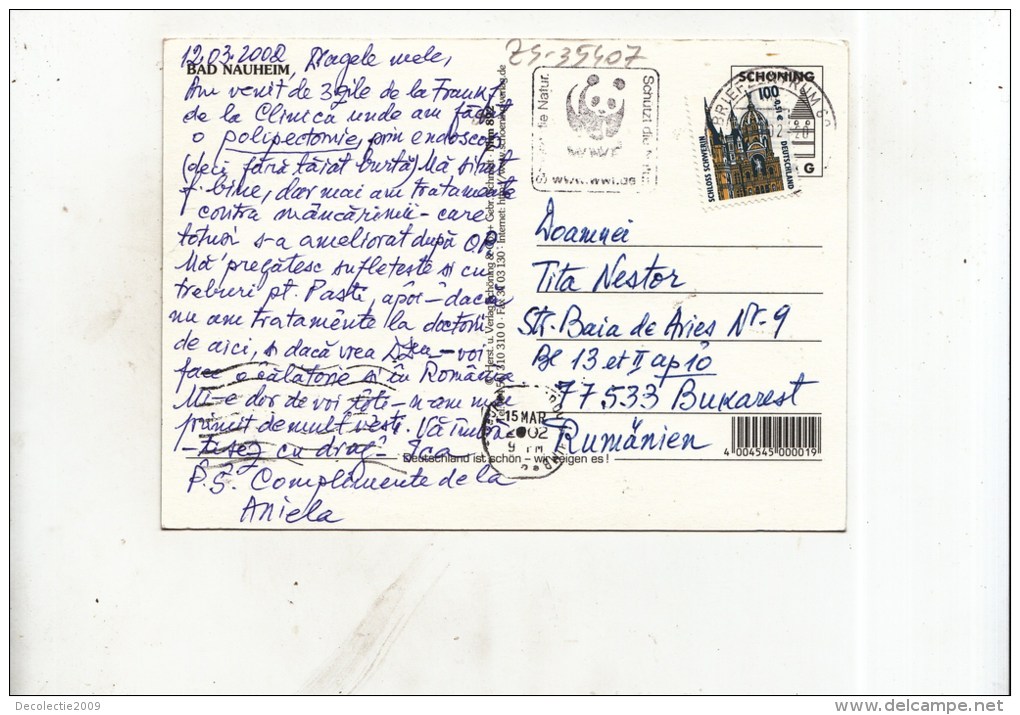 ZS-35407
12.03.2002 Dragele mele,
BAD NAUHEIM
Am venit de 3 zile de la
de la Clinica unde am făcut
o polipectomie, prin endosco
(deci fără tăiat burta) Mă simt
f. bine, dar mai am tratamente
contra mâncărimii - care
totuși s-a ameliorat după OP.
Mă pregătesc sufletește și cu
treburi pt. Paști, apoi - dacă
nu am tratamente la doctorii
de aici, și dacă vrea - voi
face o călătorie și în România
Mi-e dor de voi toți - n-am mai
primit demult vești. Vă îmbră
-țișez cu drag - Ica
P.S. Complimente de la
Aniela
Deutschland ist schön - wir zeigen es !
Schützt die Natur.
WWF
www.wwf.de
SCHÖNING
BRIEFZENTRUM
100
0,51 €
DEUTSCHLAND
SCHLOSS SCHWERIN
G
Doamnei
Tita Nestor
Str. Baia de Aries Nr-9
Bl 13 et II ap 10
77533 Bukarest
Rumänien
15 MAR
2002
4 004545 000019
Decolectie2009
www.delcampe.net